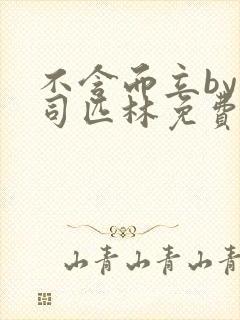 不含而立by
司匹林免費
山青山青山青